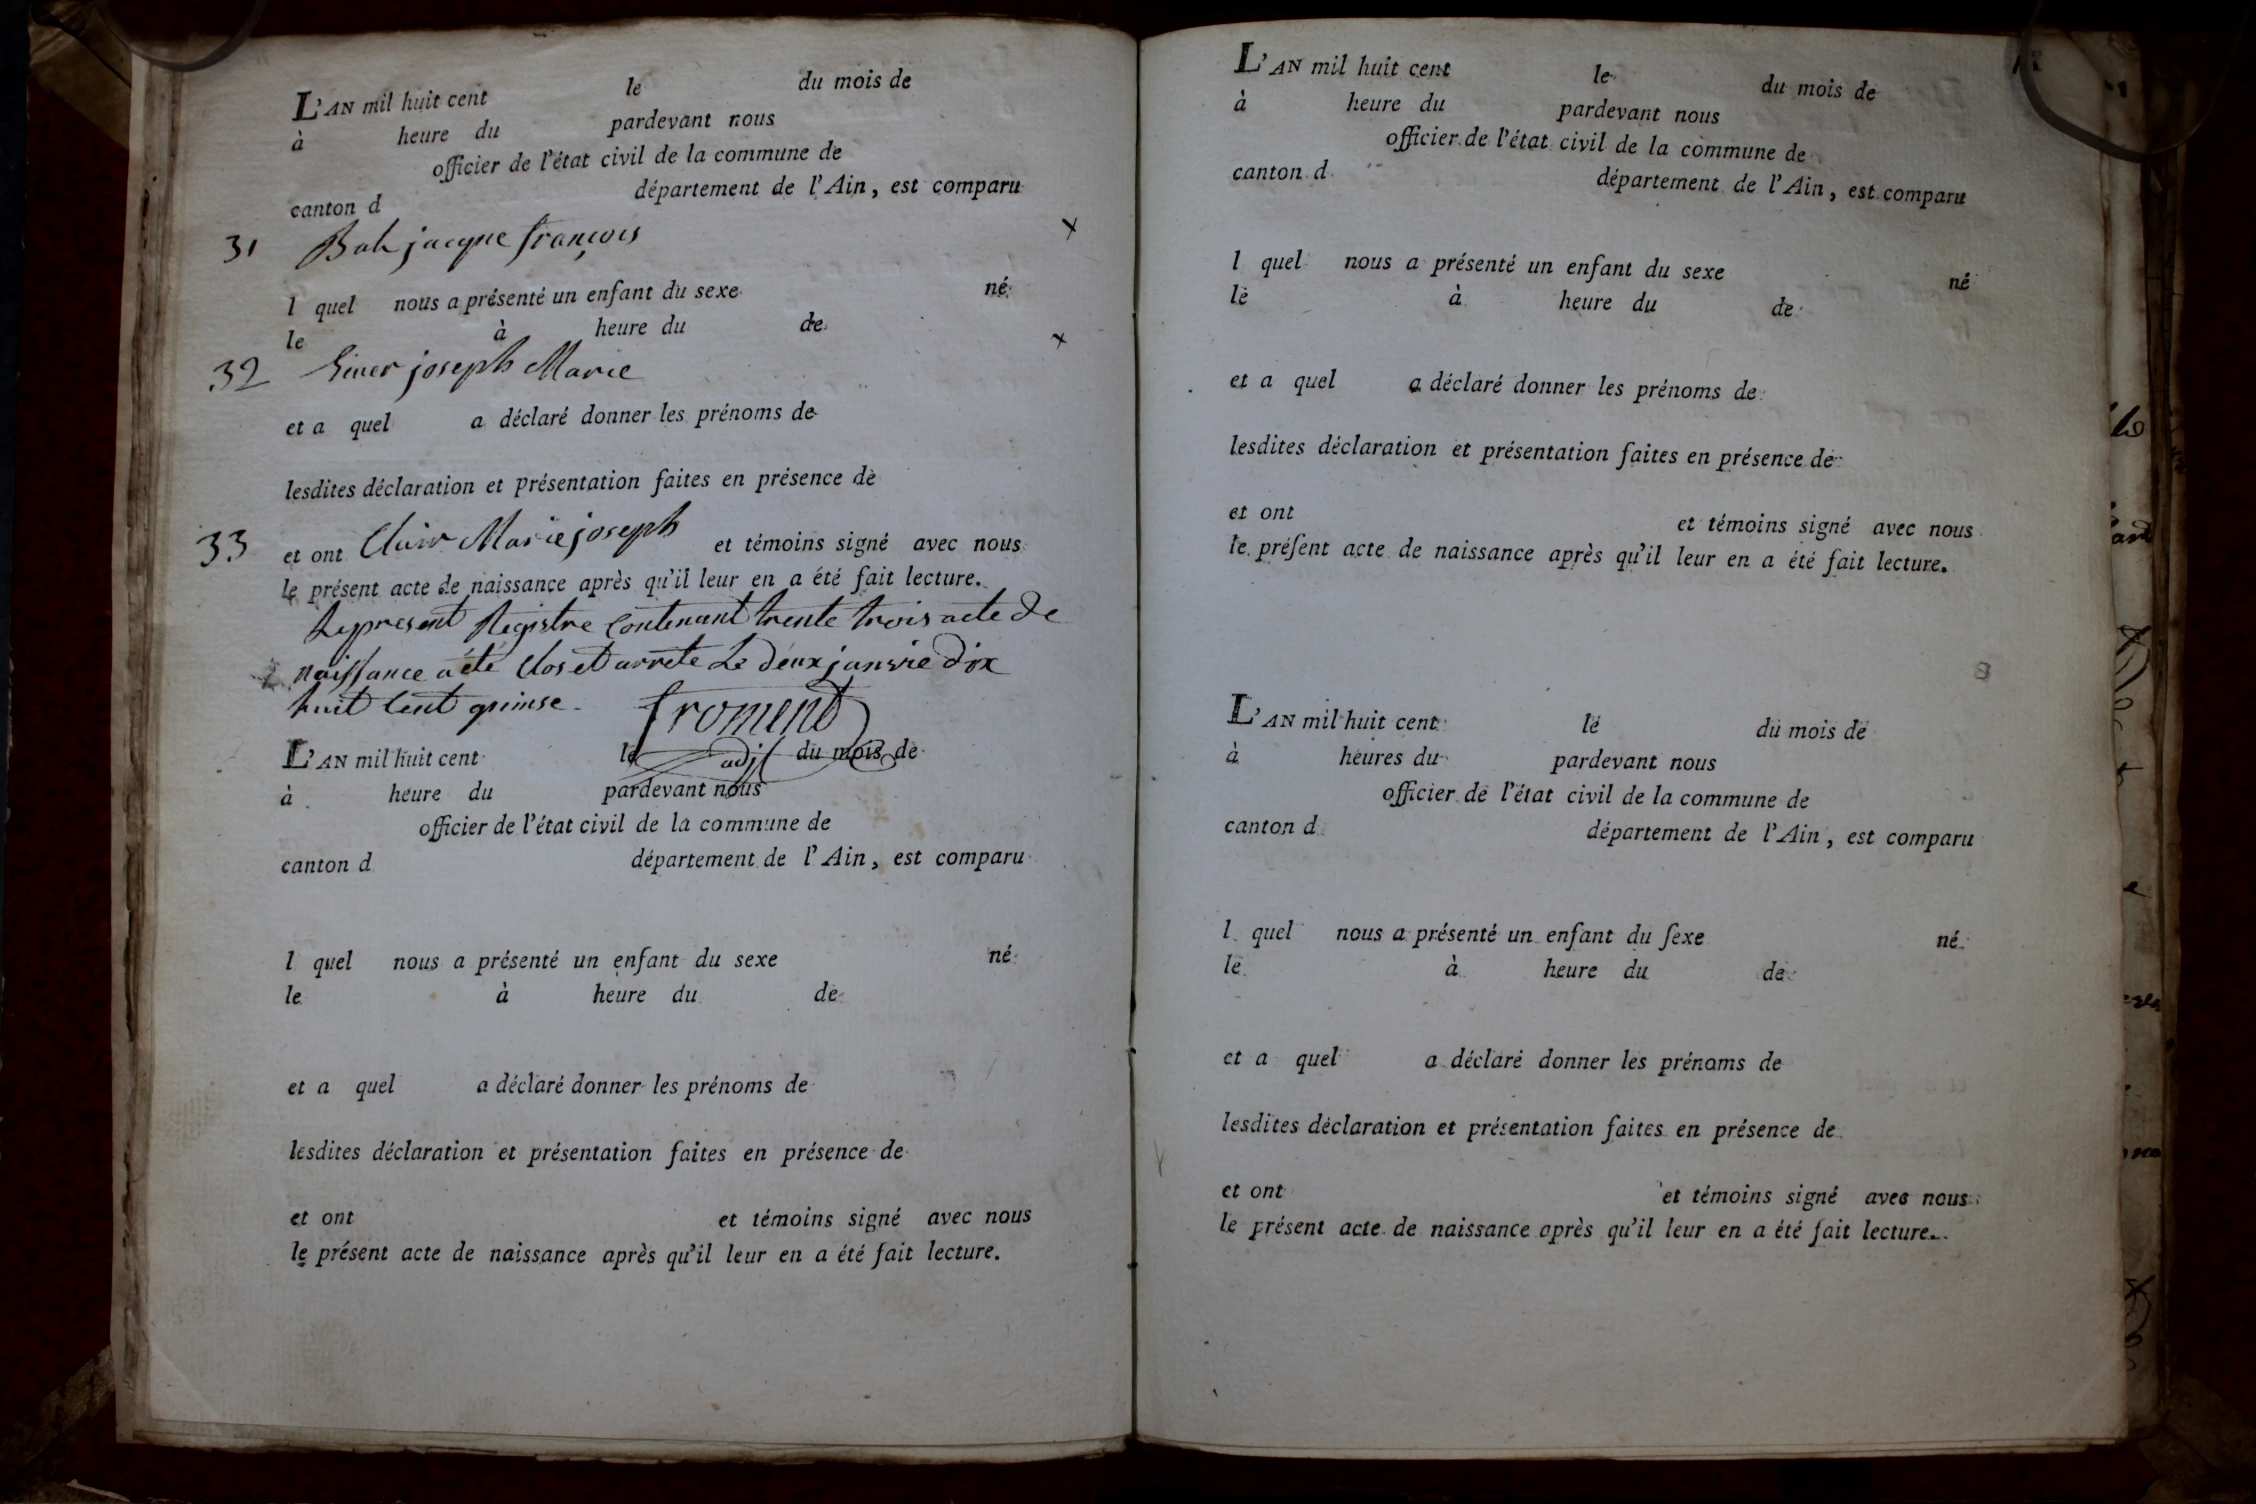 L'AN mil huit cent le du mois de
à heure du pardevant nous
officier de l'état civil de la commune de
canton d département de l'Ain, est comparu
31 jacque françois x
l quel nous a présenté un enfant du sexe né
le à heure du de
32 joseph Marie x
et a quel a déclaré donner les prénoms de
lesdites déclaration et présentation faites en présence de
33 et ont Marie joseph et témoins signé avec nous
le présent acte de naissance après qu'il leur en a été fait lecture.
Le present Registre Contenant trente trois acte de
naissance a été Clos et arrete Le deux janvie dix
huit Cent quinse. froment
adjt
L'AN mil huit cent le du mois de
à heure du pardevant nous
officier de l'état civil de la commune de
canton d département de l'Ain, est comparu
l quel nous a présenté un enfant du sexe né
le à heure du de
et a quel a déclaré donner les prénoms de
lesdites déclaration et présentation faites en présence de
et ont et témoins signé avec nous
le présent acte de naissance après qu'il leur en a été fait lecture.
L'AN mil huit cent le du mois de
à heure du pardevant nous
officier de l'état civil de la commune de
canton d département de l'Ain, est comparu
l quel nous a présenté un enfant du sexe né
le à heure du de
et a quel a déclaré donner les prénoms de
lesdites déclaration et présentation faites en présence de
et ont et témoins signé avec nous
le préſent acte de naissance après qu'il leur en a été fait lecture.
L'AN mil huit cent le du mois de
à heures du pardevant nous
officier de l'état civil de la commune de
canton d département de l'Ain, est comparu
l quel nous a présenté un enfant du ſexe né
le à heure du de
et a quel a déclaré donner les prénoms de
lesdites déclaration et présentation faites en présence de
et ont et témoins signé avec nous
le présent acte de naissance après qu'il leur en a été fait lecture.